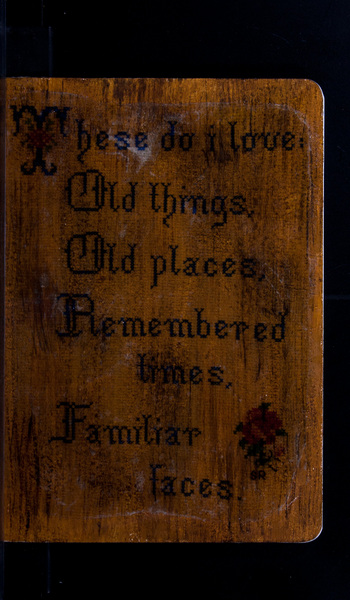 These do i love:
Old things,
Old places,
Remembered
times,
Familiar
faces.
BR